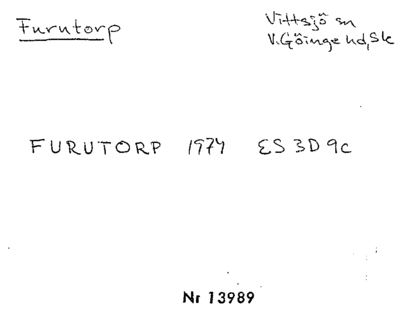 Furutorp
Vittsjö sn
V. Göinge hd, Sk
FURUTORP 1974 ES 3D 9c
Nr 13989